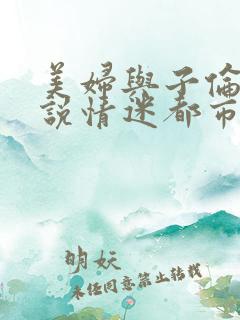 美婦與子倫
說情迷都市
明妖
未经同意禁止转载